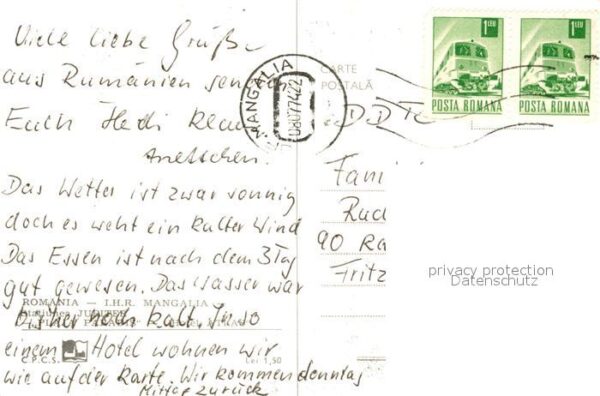 Viele liebe Grüße
aus Rumänien sen
Euch Hedi Klau
Annettchen.
Das Wetter ist zwar sonnig
doch es weht ein kalter Wind
Das Essen ist nach dem 3 Tag
gut gewesen. Das Wasser war
bisher noch kalt. In so
einem Hotel wohnen wir
wie auf der Karte. Wir kommen donntag
Mittag zurück
ROMANIA — I.H.R. MANGALIA
C.P.C.S.
Lei 1,50
CARTE
POSTALĂ
MANGALIA
080774 22
1 LEU
POSTA ROMANA
1 LEU
POSTA ROMANA
DDR
Fami
Rud
90 Ka
Fritz
privacy protection
Datenschutz